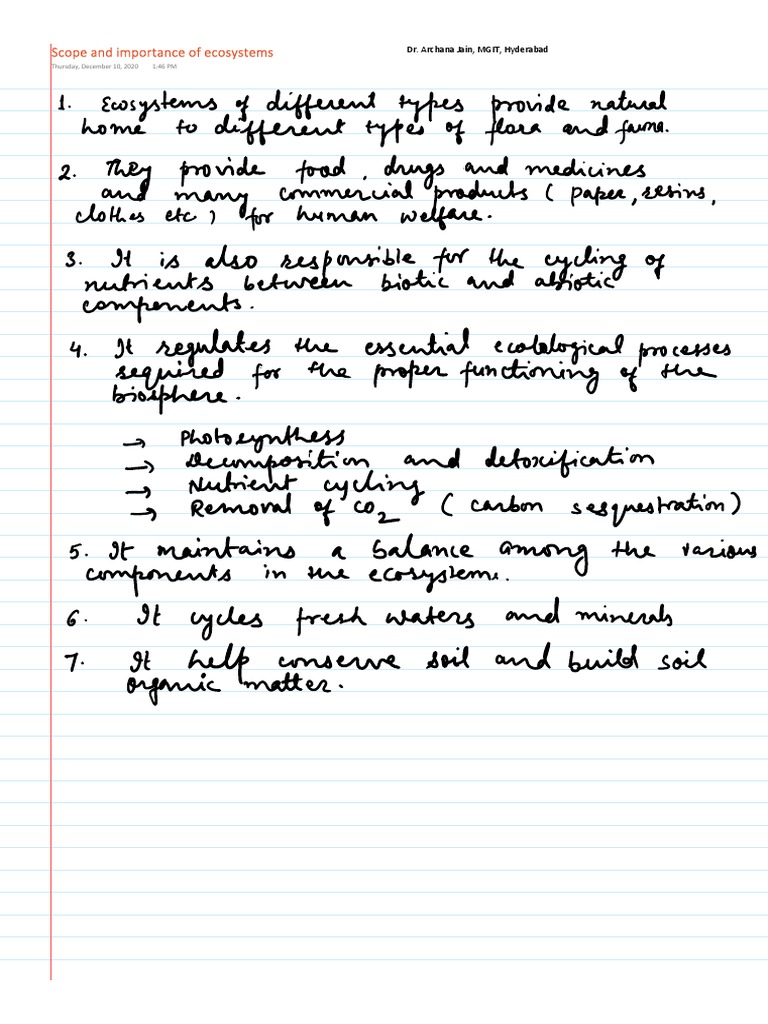 Scope and importance of ecosystems
Dr. Archana Jain, MGIT, Hyderabad
Thursday, December 10, 2020 1:46 PM
1. Ecosystems of different types provide natural
home to different types of flora and fauna.
2. They provide food, drugs and medicines
and many commercial products (paper, resins,
clothes etc) for human welfare.
3. It is also responsible for the cycling of
nutrients between biotic and abiotic
components.
4. It regulates the essential processes
required for the proper functioning of the
biosphere.
→ Photosynthess
→ Decomposition and detoxification
→ Nutrient cycling
→ Removal of CO2 (carbon sesquestration)
5. It maintains a balance among the various
components in the ecosystem.
6. It cycles fresh waters and minerals
7. It help conserve soil and build soil
organic matter.